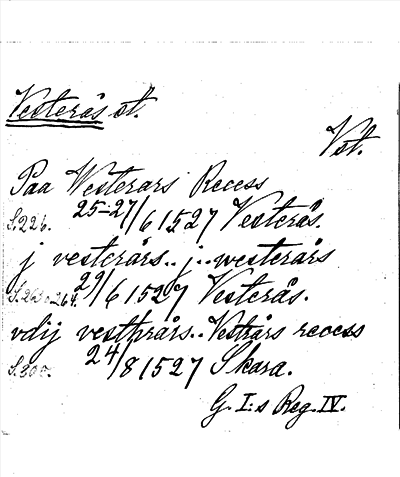 Vesterås st.
Vst.
Paa Westerars Recess
S.226. 25-27/6 1527 Vesterås.
j vesterårs.. j.. westerårs
S.262-264. 29/6 1527 Vesterås.
vdij vesthrårs.. Vestrårs recess
S.300. 24/8 1527 Skara.
G. I:s Reg. IV.